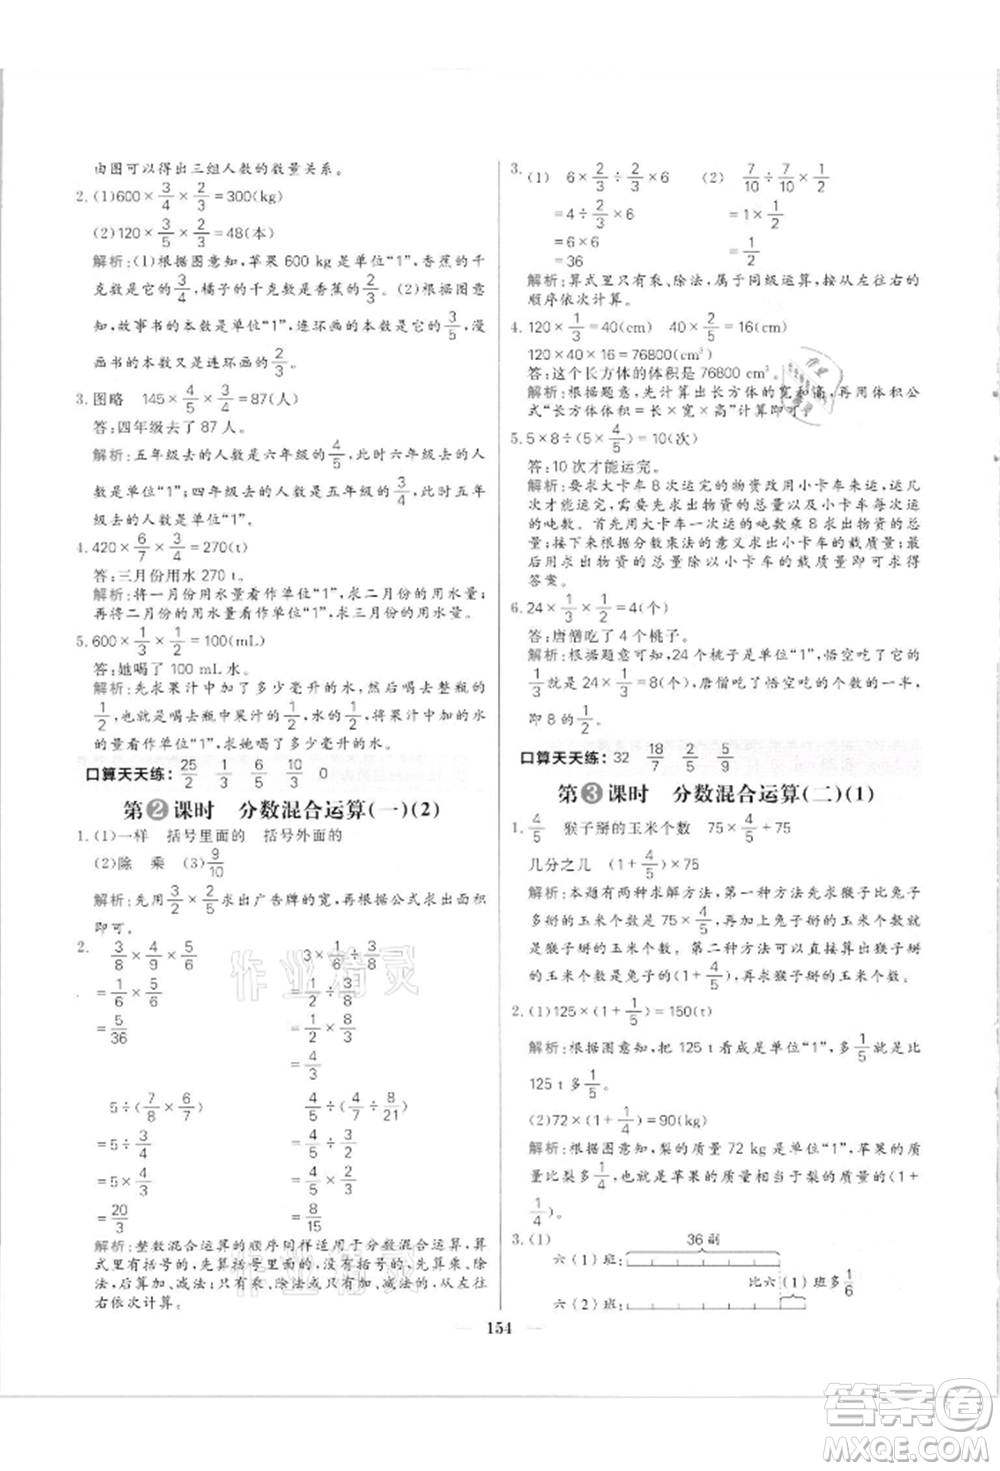 由图可以得出三组人数的数量关系。
2. (1)600×3/4×2/3=300(kg)
(2)120×3/5×2/3=48(本)
解析:(1)根据图意知,苹果 600 kg 是单位“1”,香蕉的千
克数是它的3/4,橘子的千克数是香蕉的2/3。(2)根据图意
知,故事书的本数是单位“1”,连环画的本数是它的3/5,漫
画书的本数又是连环画的2/3。
3. 图略 145×4/5×3/4=87(人)
答:四年级去了 87 人。
解析:五年级去的人数是六年级的4/5,此时六年级去的人
数是单位“1”;四年级去的人数是五年级的3/4,此时五年
级去的人数是单位“1”。
4. 420×6/7×3/4=270(t)
答:三月份用水 270 t。
解析:将一月份用水量看作单位“1”,求二月份的用水量;
再将二月份的用水量看作单位“1”,求三月份的用水量。
5. 600×1/3×1/2=100(mL)
答:她喝了 100 mL 水。
解析:先求果汁中加了多少毫升的水,然后喝去整瓶的
1/2,也就是喝去瓶中果汁的1/2,水的1/2,将瓶中加入的水
的量看作单位“1”,求她喝了多少毫升的水。
口算天天练: 25/2 1/5 6/5 10/3 0
第2课时 分数混合运算(一)(2)
1. (1)一样 括号里面的 括号外面的
(2)除 乘 (3)9/10
解析:先用3/2×2/5求出广告牌的宽,再根据公式求出面积
即可。
2. 3/8×4/9×5/6 3×1/6÷2/3
=1/6×5/6 =1/2÷2/3
=5/36 =1/2×3/2
=3/4
5÷(7/8×6/7) 4/5÷(4/7÷8/21)
=5÷3/4 =4/5÷3/2
=5×4/3 =4/5×2/3
=20/3 =8/15
解析:整数混合运算的顺序同样适用于分数混合运算,算
式里有括号的,先算括号里面的;没有括号的,先算乘、除
法,后算加、减法;只有乘、除法或只有加、减法的,从左往
右依次计算。
3. (1) 6×2/3÷2/3×6 (2) 7/10÷7/10×1/2
=4÷2/3×6 =1×1/2
=6×6 =1/2
=36
解析:算式里只有乘、除法,属于同级运算,从左往右的
顺序依次计算。
4. 120×1/3=40(cm) 40×2/5=16(cm)
120×40×16=76800(cm³)
答:这个长方体的体积是 76800 cm³。
解析:根据题意,先计算出长方体的宽和高,再用体积公
式“长方体体积=长×宽×高”计算即可。
5. 5×8÷(5×4/5)=10(次)
答:10次才能运完。
解析:要求大卡车 8 次运完的物资改用小卡车运,运几
次才能运完,需要先求出物资的吨数和小卡车一次运
的吨数。首先用大卡车一次运的吨数乘 8 求出物资的
吨数;其次根据分数乘法的意义求出小卡车的载质量;最
后用运出物资的吨数除以小卡车的载质量即可求得
答案。
6. 24×1/3×1/2=4(个)
答:唐僧吃了 4 个桃子。
解析:根据题意可知,24 个桃子是单位“1”,悟空吃了它的
1/3就是 24×1/3=8(个),唐僧吃了悟空的个数的一半,
即 8 的1/2。
口算天天练: 32 18/7 2/5 5/9
第3课时 分数混合运算(二)(1)
1. 4/5 猴子掰的玉米个数 75×4/5+75
几分之几 (1+4/5)×75
解析:本题有两种求解方法,第一种方法先求猴子比兔子
多掰的玉米个数是75×4/5,再加上兔子掰的玉米个数就是
猴子掰的玉米个数。第二种方法可以求出猴子掰的玉
米个数是兔子的(1+4/5),再求猴子掰的玉米个数。
2. (1)125×(1+1/5)=150(t)
解析:根据图意知,把 125 t 看成是单位“1”,多1/5是比
125 t 多1/5。
(2)72×(1+1/4)=90(kg)
解析:根据图意知,梨的质量 72 kg 是单位“1”,苹果的质
量比梨多1/4,也就是苹果的质量相当于梨的质量的(1+
1/4)。
3. (1) 36 副
六(1)班:
比六(1)班多1/6
六(2)班:
154
作业精灵
作业精灵
答案圈
MXQE.COM